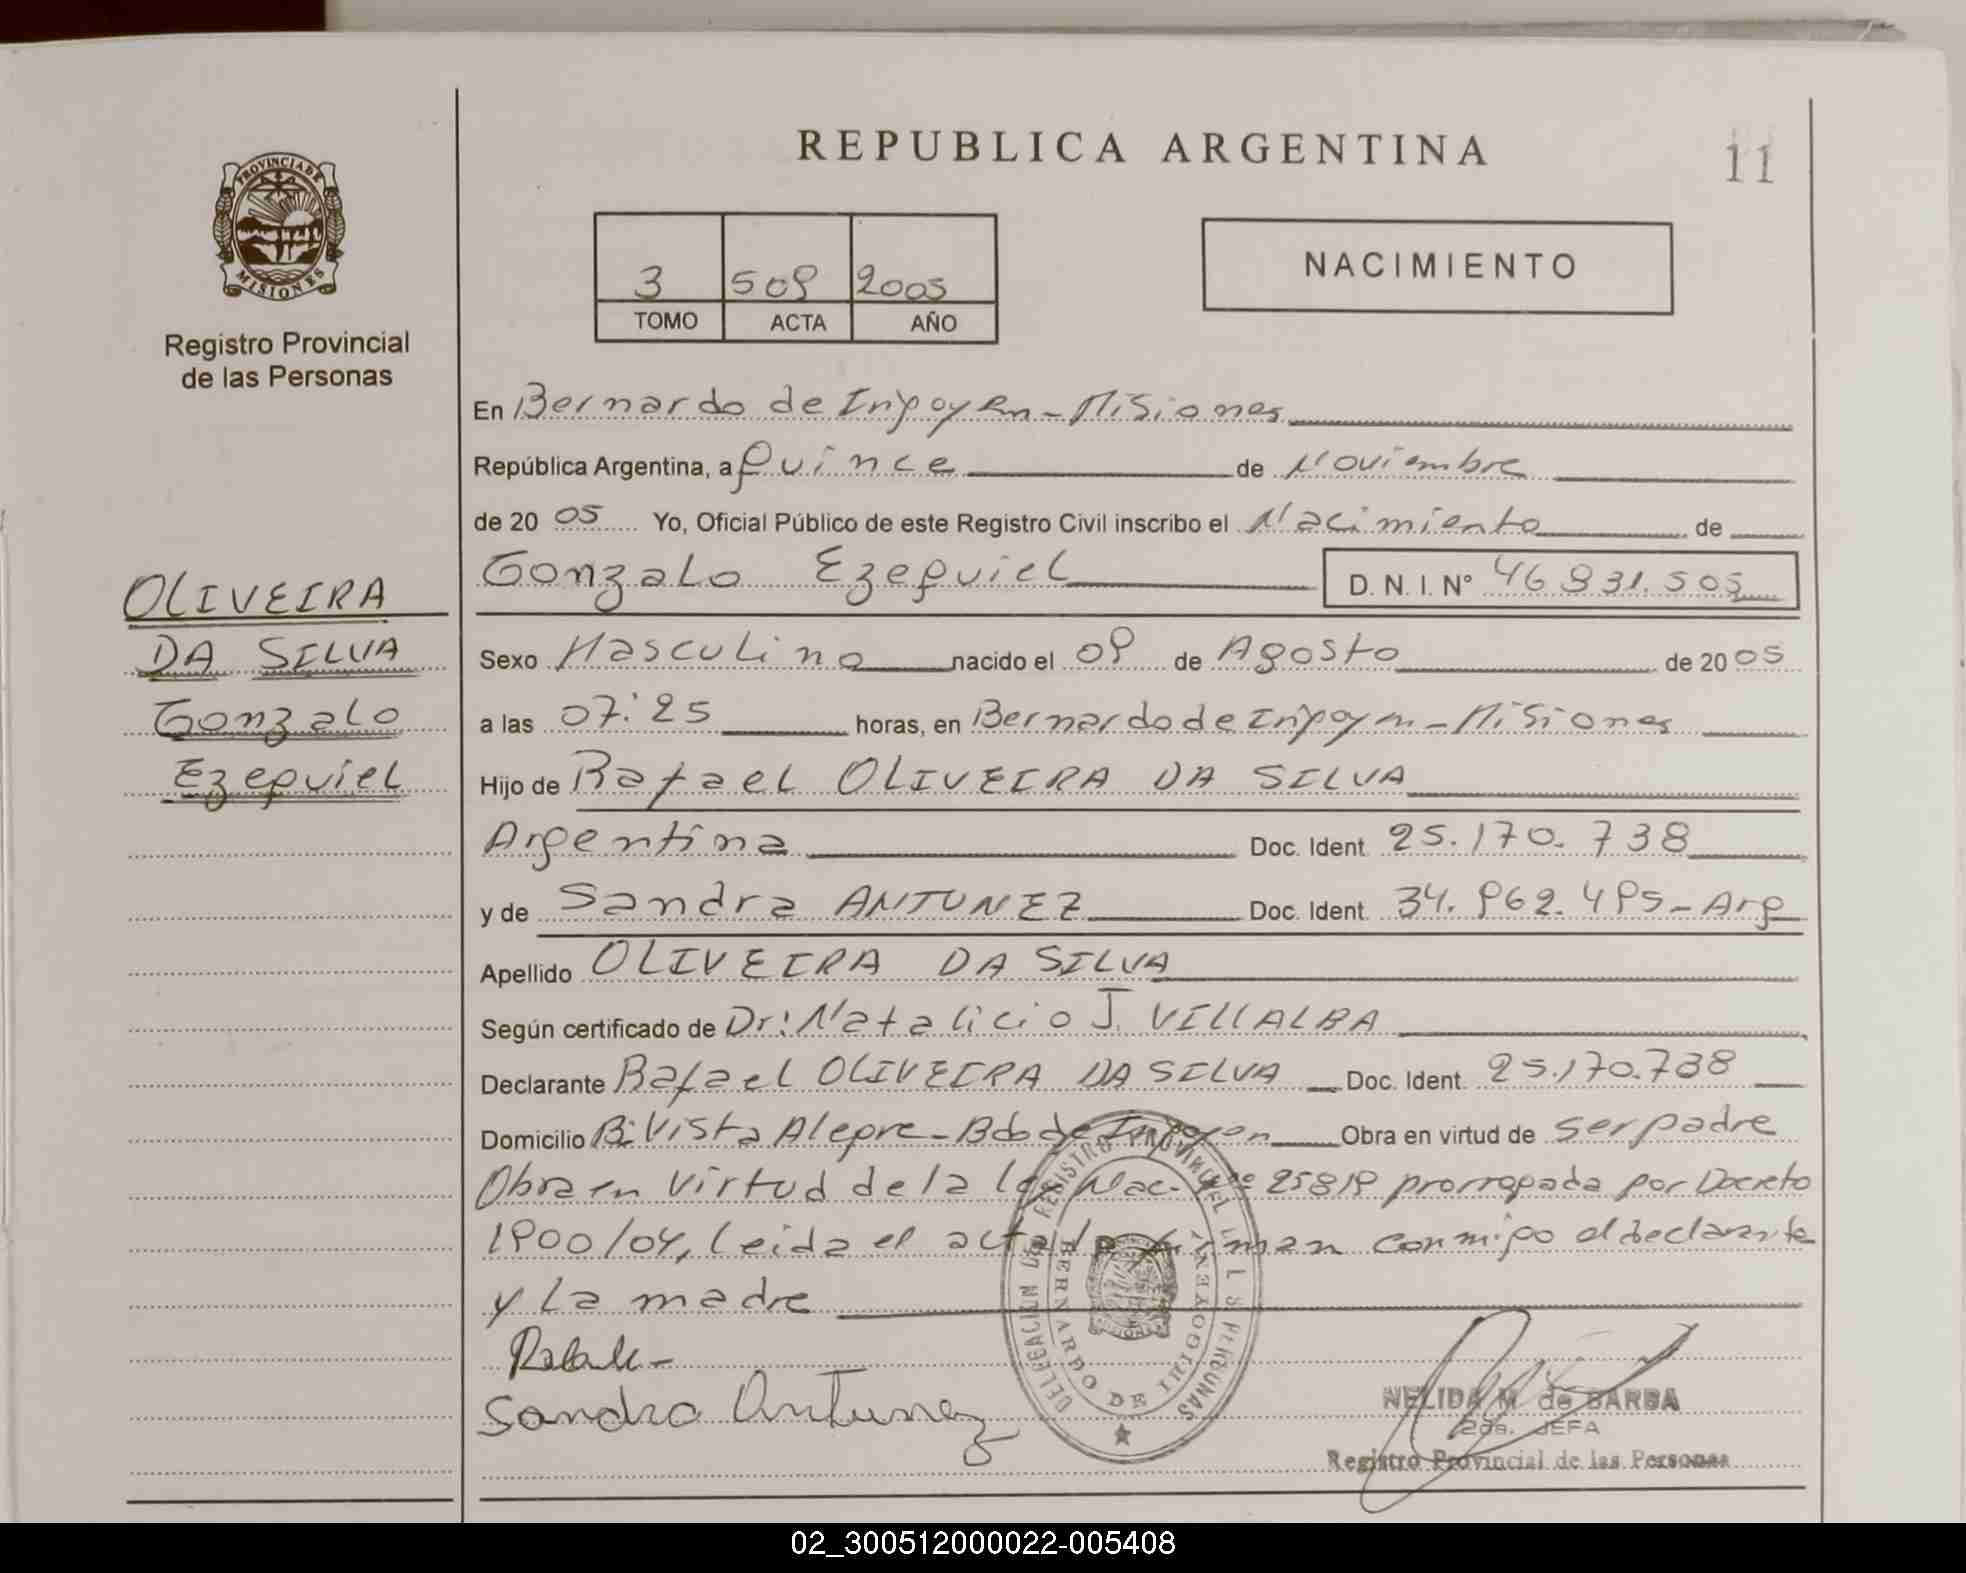 REPUBLICA ARGENTINA
11
PROVINCIA DE
MISIONES
Registro Provincial
de las Personas
3 509 2005
TOMO ACTA AÑO
NACIMIENTO
En Bernardo de Irigoyen - Misiones
República Argentina, a Quince de Noviembre
de 20 05 Yo, Oficial Público de este Registro Civil inscribo el Nacimiento de
Gonzalo Ezequiel D. N. I. N° 46.931.505
OLIVEIRA
DA SILVA
Gonzalo
Ezequiel
Sexo Masculino nacido el 09 de Agosto de 20 05
a las 07:25 horas, en Bernardo de Irigoyen - Misiones
Hijo de Rafael OLIVEIRA DA SILVA
Argentina Doc. Ident. 25.170.738
y de Sandra ANTUNEZ Doc. Ident. 34.962.495 - Arg
Apellido OLIVEIRA DA SILVA
Según certificado de Dr: Natalicio J. VILLALBA
Declarante Rafael OLIVEIRA DA SILVA Doc. Ident. 25.170.738
Domicilio B: Vista Alegre - Bdo de Irigoyen Obra en virtud de ser padre
Obra en virtud de la ley Nac. N° 25819 prorrogada por Decreto
1900/04, leida el acta la firman conmigo el declarante
y la madre
Sandra Antunez
DELEGACION DE REGISTRO PROVINCIAL DE LAS PERSONAS
BERNARDO DE IRIGOYEN
NELIDA M de BARBA
2da. JEFA
Registro Provincial de las Personas
02_300512000022-005408